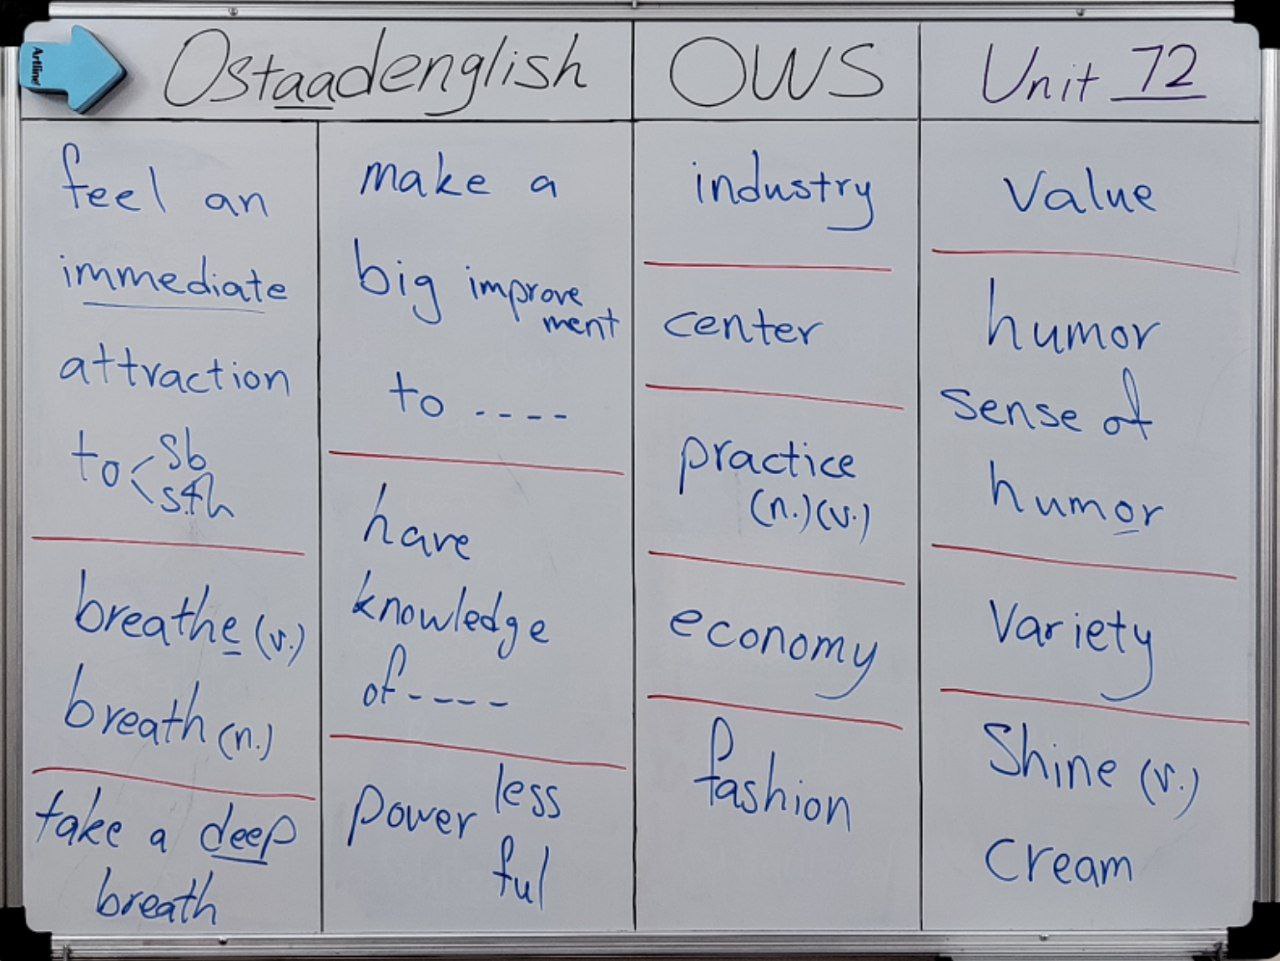 Artline
Ostaadenglish
OWS
Unit 72
feel an
immediate
attraction
to < sb
sth
breathe (v.)
breath (n.)
take a deep
breath
make a
big improve
ment
to ----
have
knowledge
of ----
power less
ful
industry
center
practice
(n.) (v.)
economy
fashion
Value
humor
sense of
humor
Variety
Shine (v.)
Cream